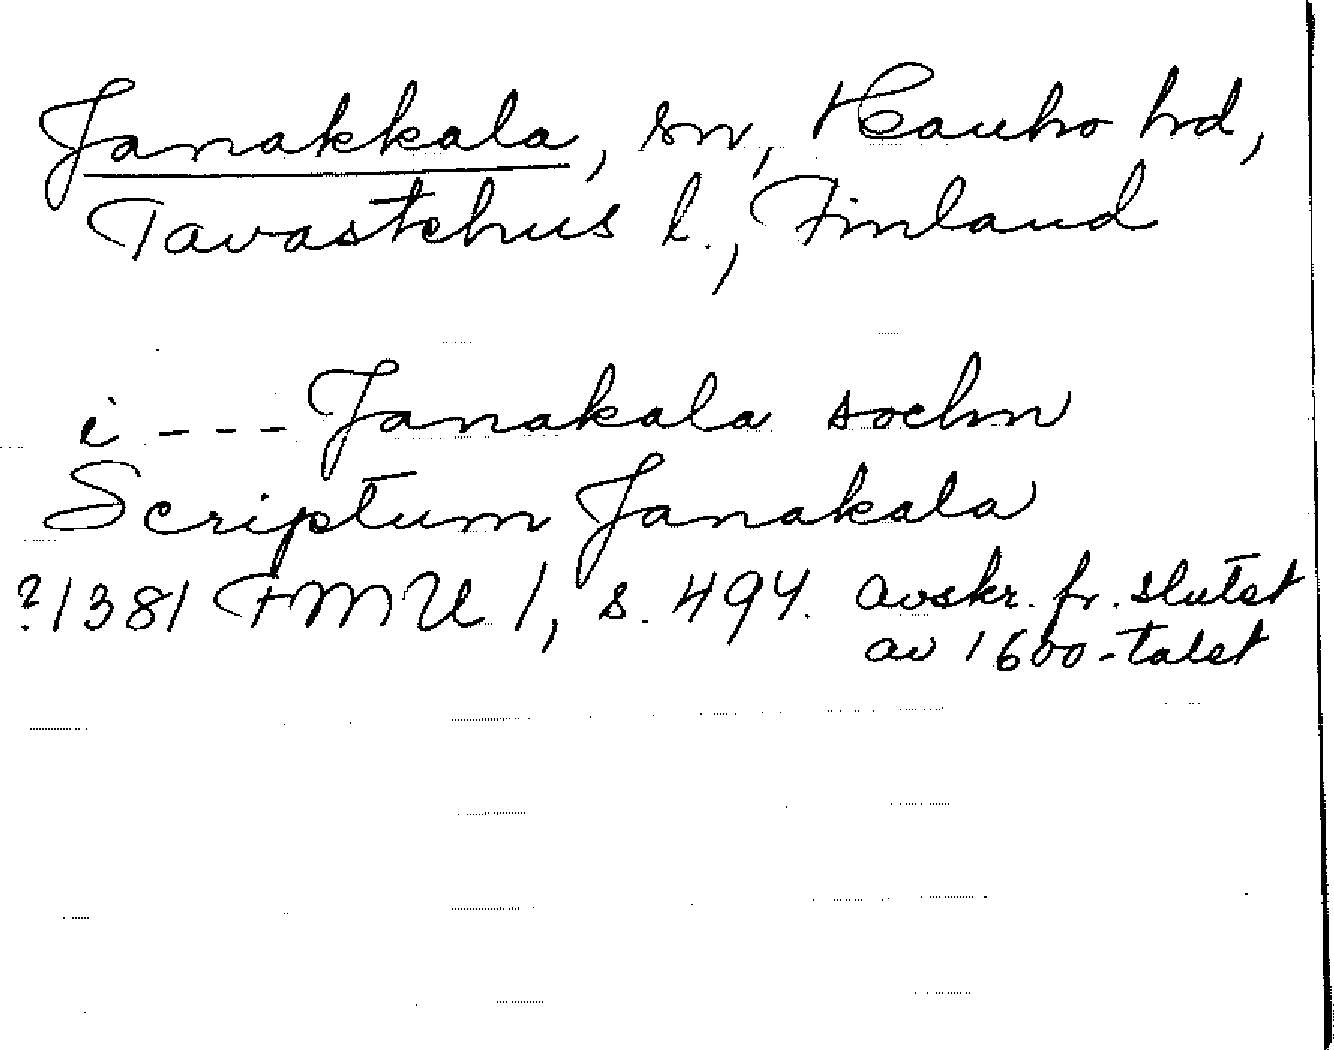 Janakkala, sn, Hauho hd,
Tavastehus l., Finland
i --- Janakala sochn
Scriptum Janakala
?1381 FMU 1, s. 494. avskr. fr. slutet
av 1600-talet